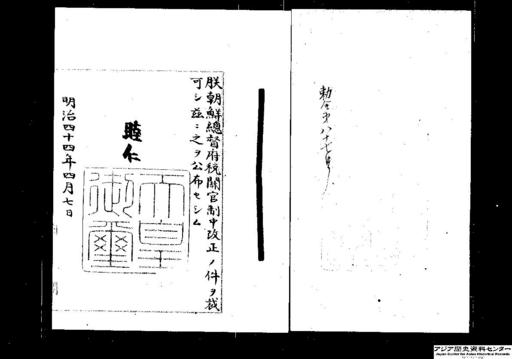 勅令第八十七号
朕朝鮮總督府税關官制中改正ノ件ヲ裁
可シ茲ニ之ヲ公布セシム
睦仁
天皇御璽
明治四十四年四月七日
アジア歴史資料センター
Japan Center for Asian Historical Records